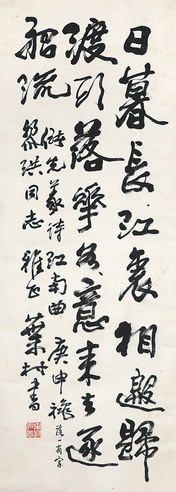 日暮長江裏相邀歸
渡頭落華如意來去逐
船流
儲光羲詩江南曲 庚申穐
落一有字
同志 雅正 葉書